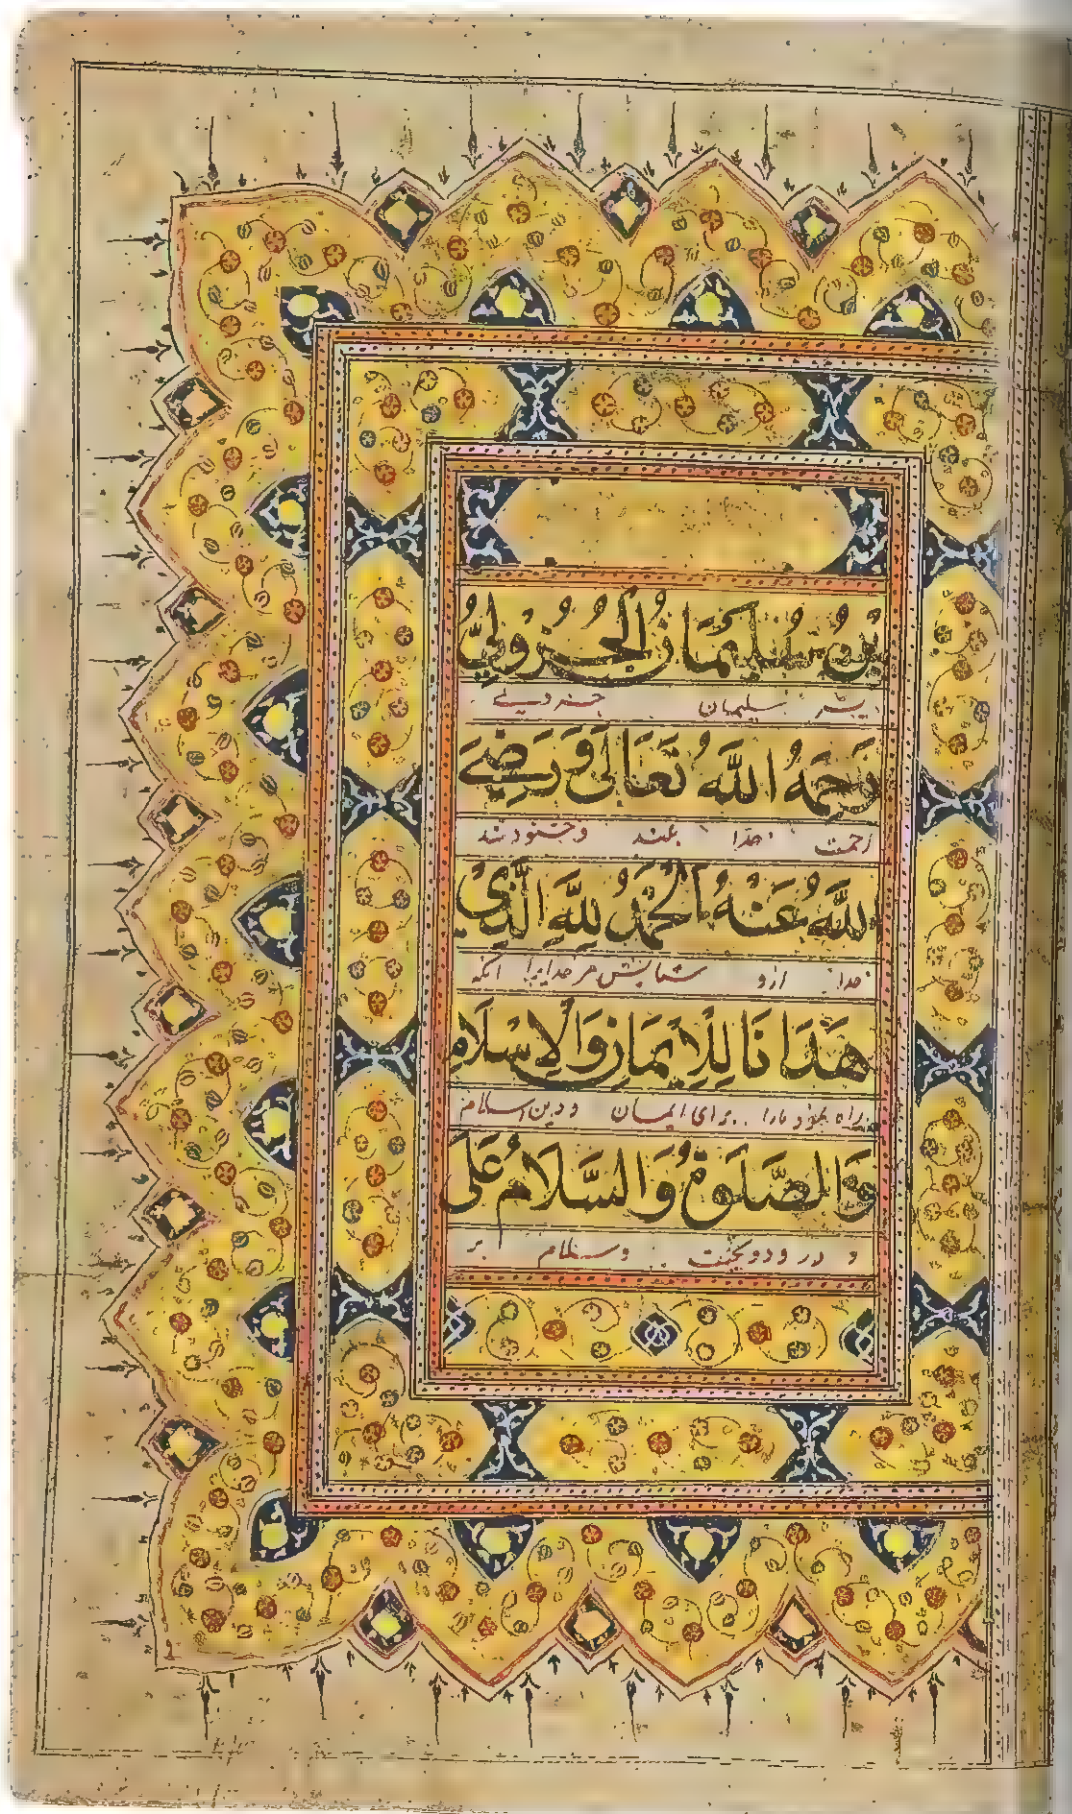 بْنُ سُلَيْمَانَ الْجُزُولِيُّ
پسر سلیمان جزولی
رَحِمَهُ اللّٰهُ تَعَالَى وَرَضِيَ
رحمت خدا وخشنود شد
اللّٰهُ عَنْهُ الْحَمْدُ لِلّٰهِ الَّذِي
خدا ازو ستایش مر خدایرا انکه
هَدَانَا لِلْاِيْمَانِ وَالْاِسْلَامِ
راه نمود مارا برای ایمان ودین اسلام
وَالصَّلَوةُ وَالسَّلَامُ عَلَى
و درود وسلام بر